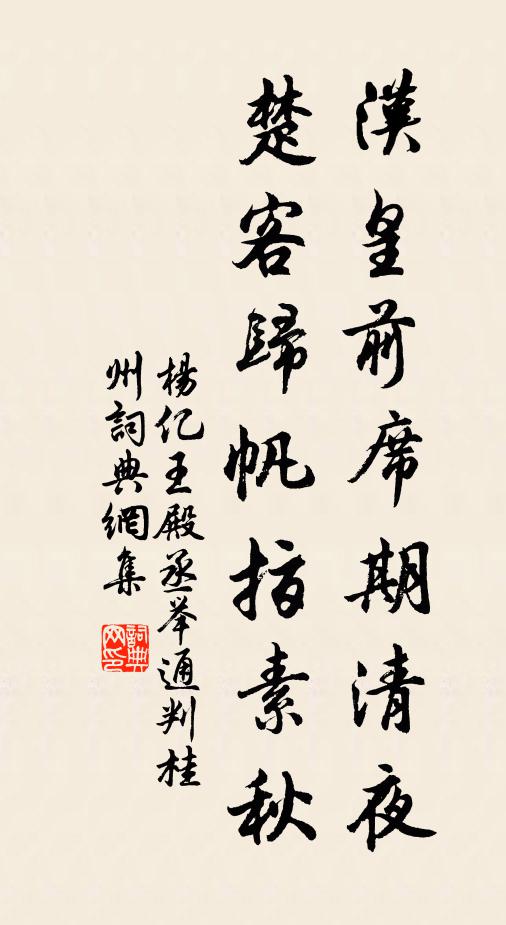 漢皇前席期清夜
楚客歸帆指素秋
楊亿王殿丞举通判桂
州詞典網集
詞典
网印